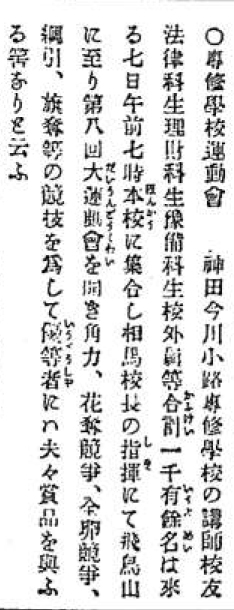 〇專修學校運動會　神田今川小路專修學校の講師校友
法律科生理財科生豫備科生校外員等合計一千有餘名は來
る七日午前七時本校に集合し相馬校長の指揮にて飛鳥山
に至り第八回大運動會を開き角力、花奪競爭、全卵競爭、
綱引、旗奪等の競技を爲して優等者にハ夫々賞品を與ふ
る筈なりと云ふ